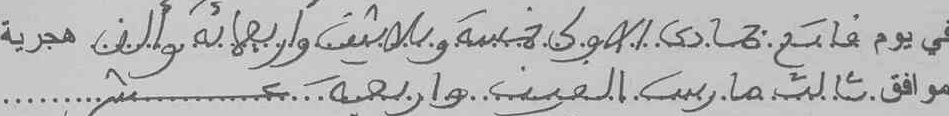 في يوم فاتح جمادى الاولى خمسة وثلاثين واربعمائة وألف هجرية
موافق ثالث مارس ألفين واربعة عشر